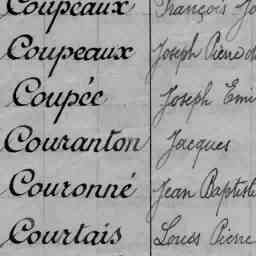 Coupeaux François Jo
Coupeaux Joseph Pierre
Coupée Joseph Emi
Couranton Jacques
Couronné Jean Baptiste
Courtais Louis Pierre